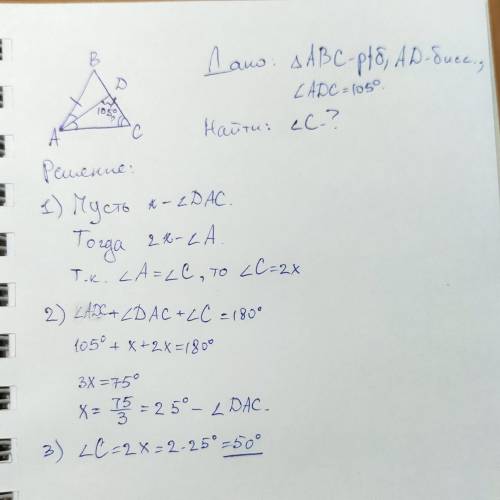 B
D
105°
A
C
Дано: △ABC-р/б, AD-бисс.,
∠ADC=105°.
Найти: ∠C-?
Решение:
1) Пусть x-∠DAC.
Тогда 2x-∠A.
т.к. ∠A=∠C, то ∠C=2x
2) ∠ADC+∠DAC+∠C=180°
105°+x+2x=180°
3x=75°
x=75/3=25°-∠DAC.
3) ∠C=2x=2·25°=50°